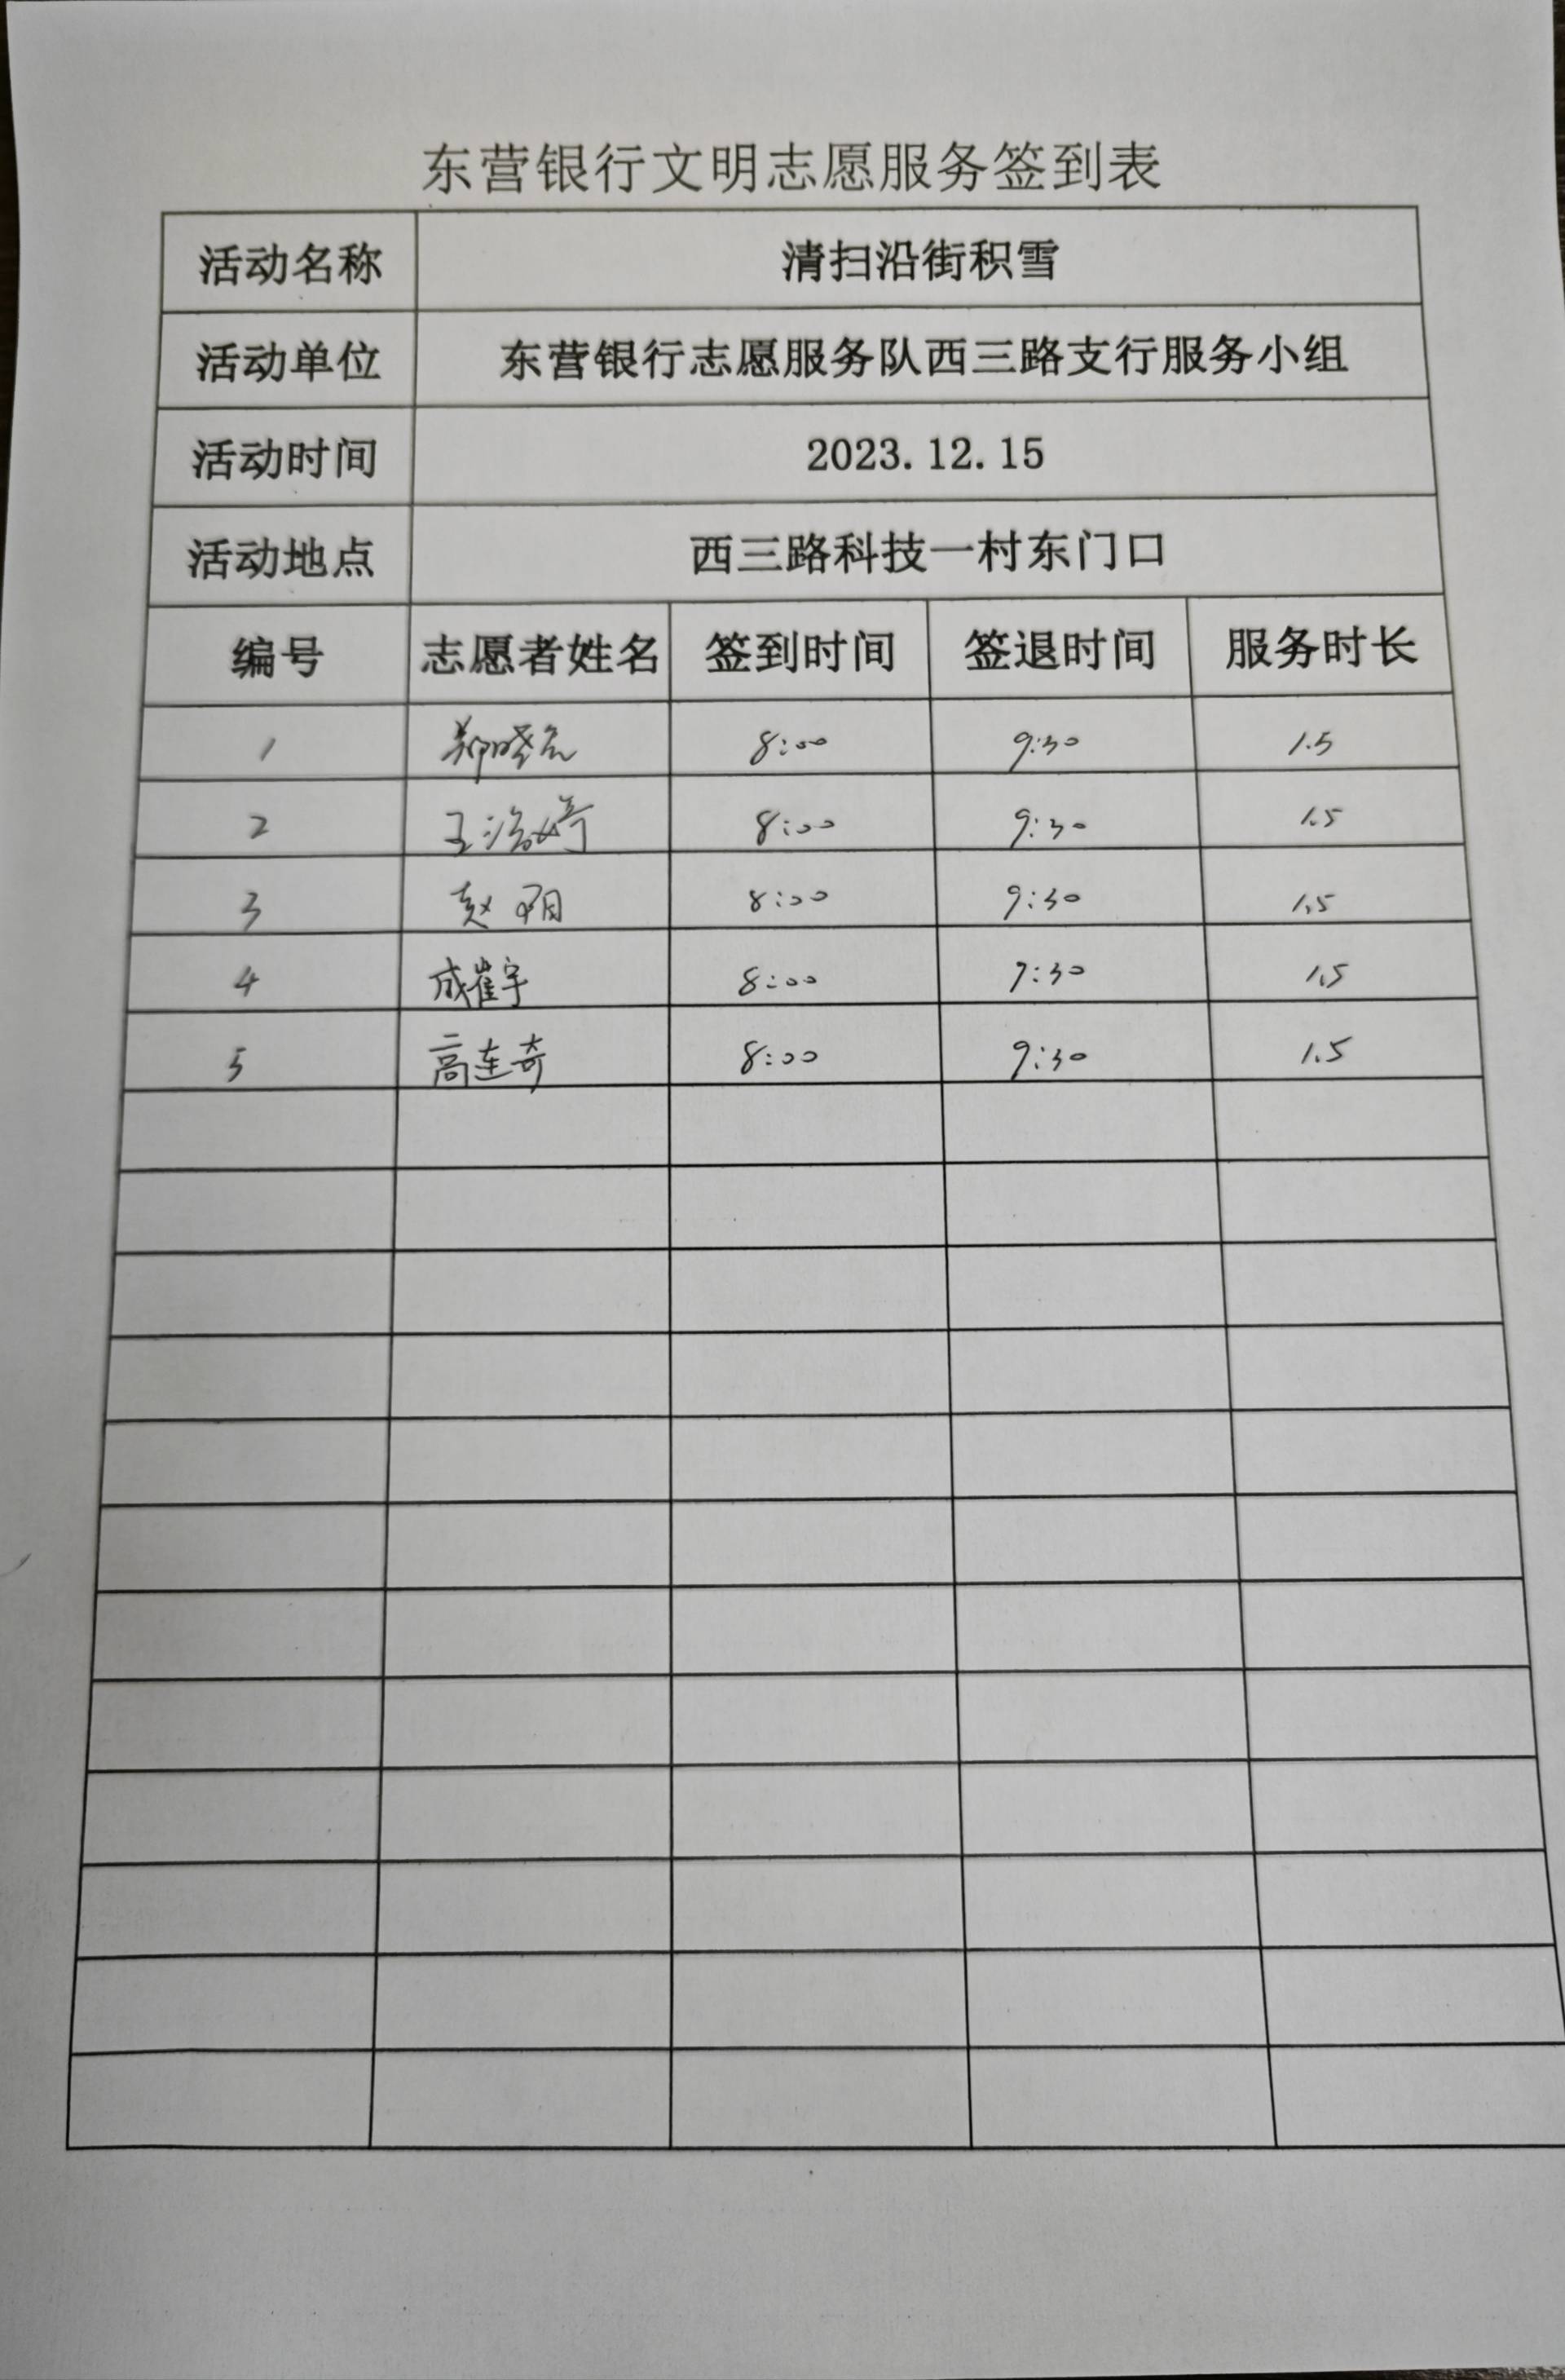 东营银行文明志愿服务签到表
活动名称 清扫沿街积雪
活动单位 东营银行志愿服务队西三路支行服务小组
活动时间 2023.12.15
活动地点 西三路科技一村东门口
编号 志愿者姓名 签到时间 签退时间 服务时长
1 郑晓 8:00 9:30 1.5
2 王 婷 8:00 9:30 1.5
3 赵 8:00 9:30 1.5
4 成崔宇 8:00 9:30 1.5
5 高连奇 8:00 9:30 1.5